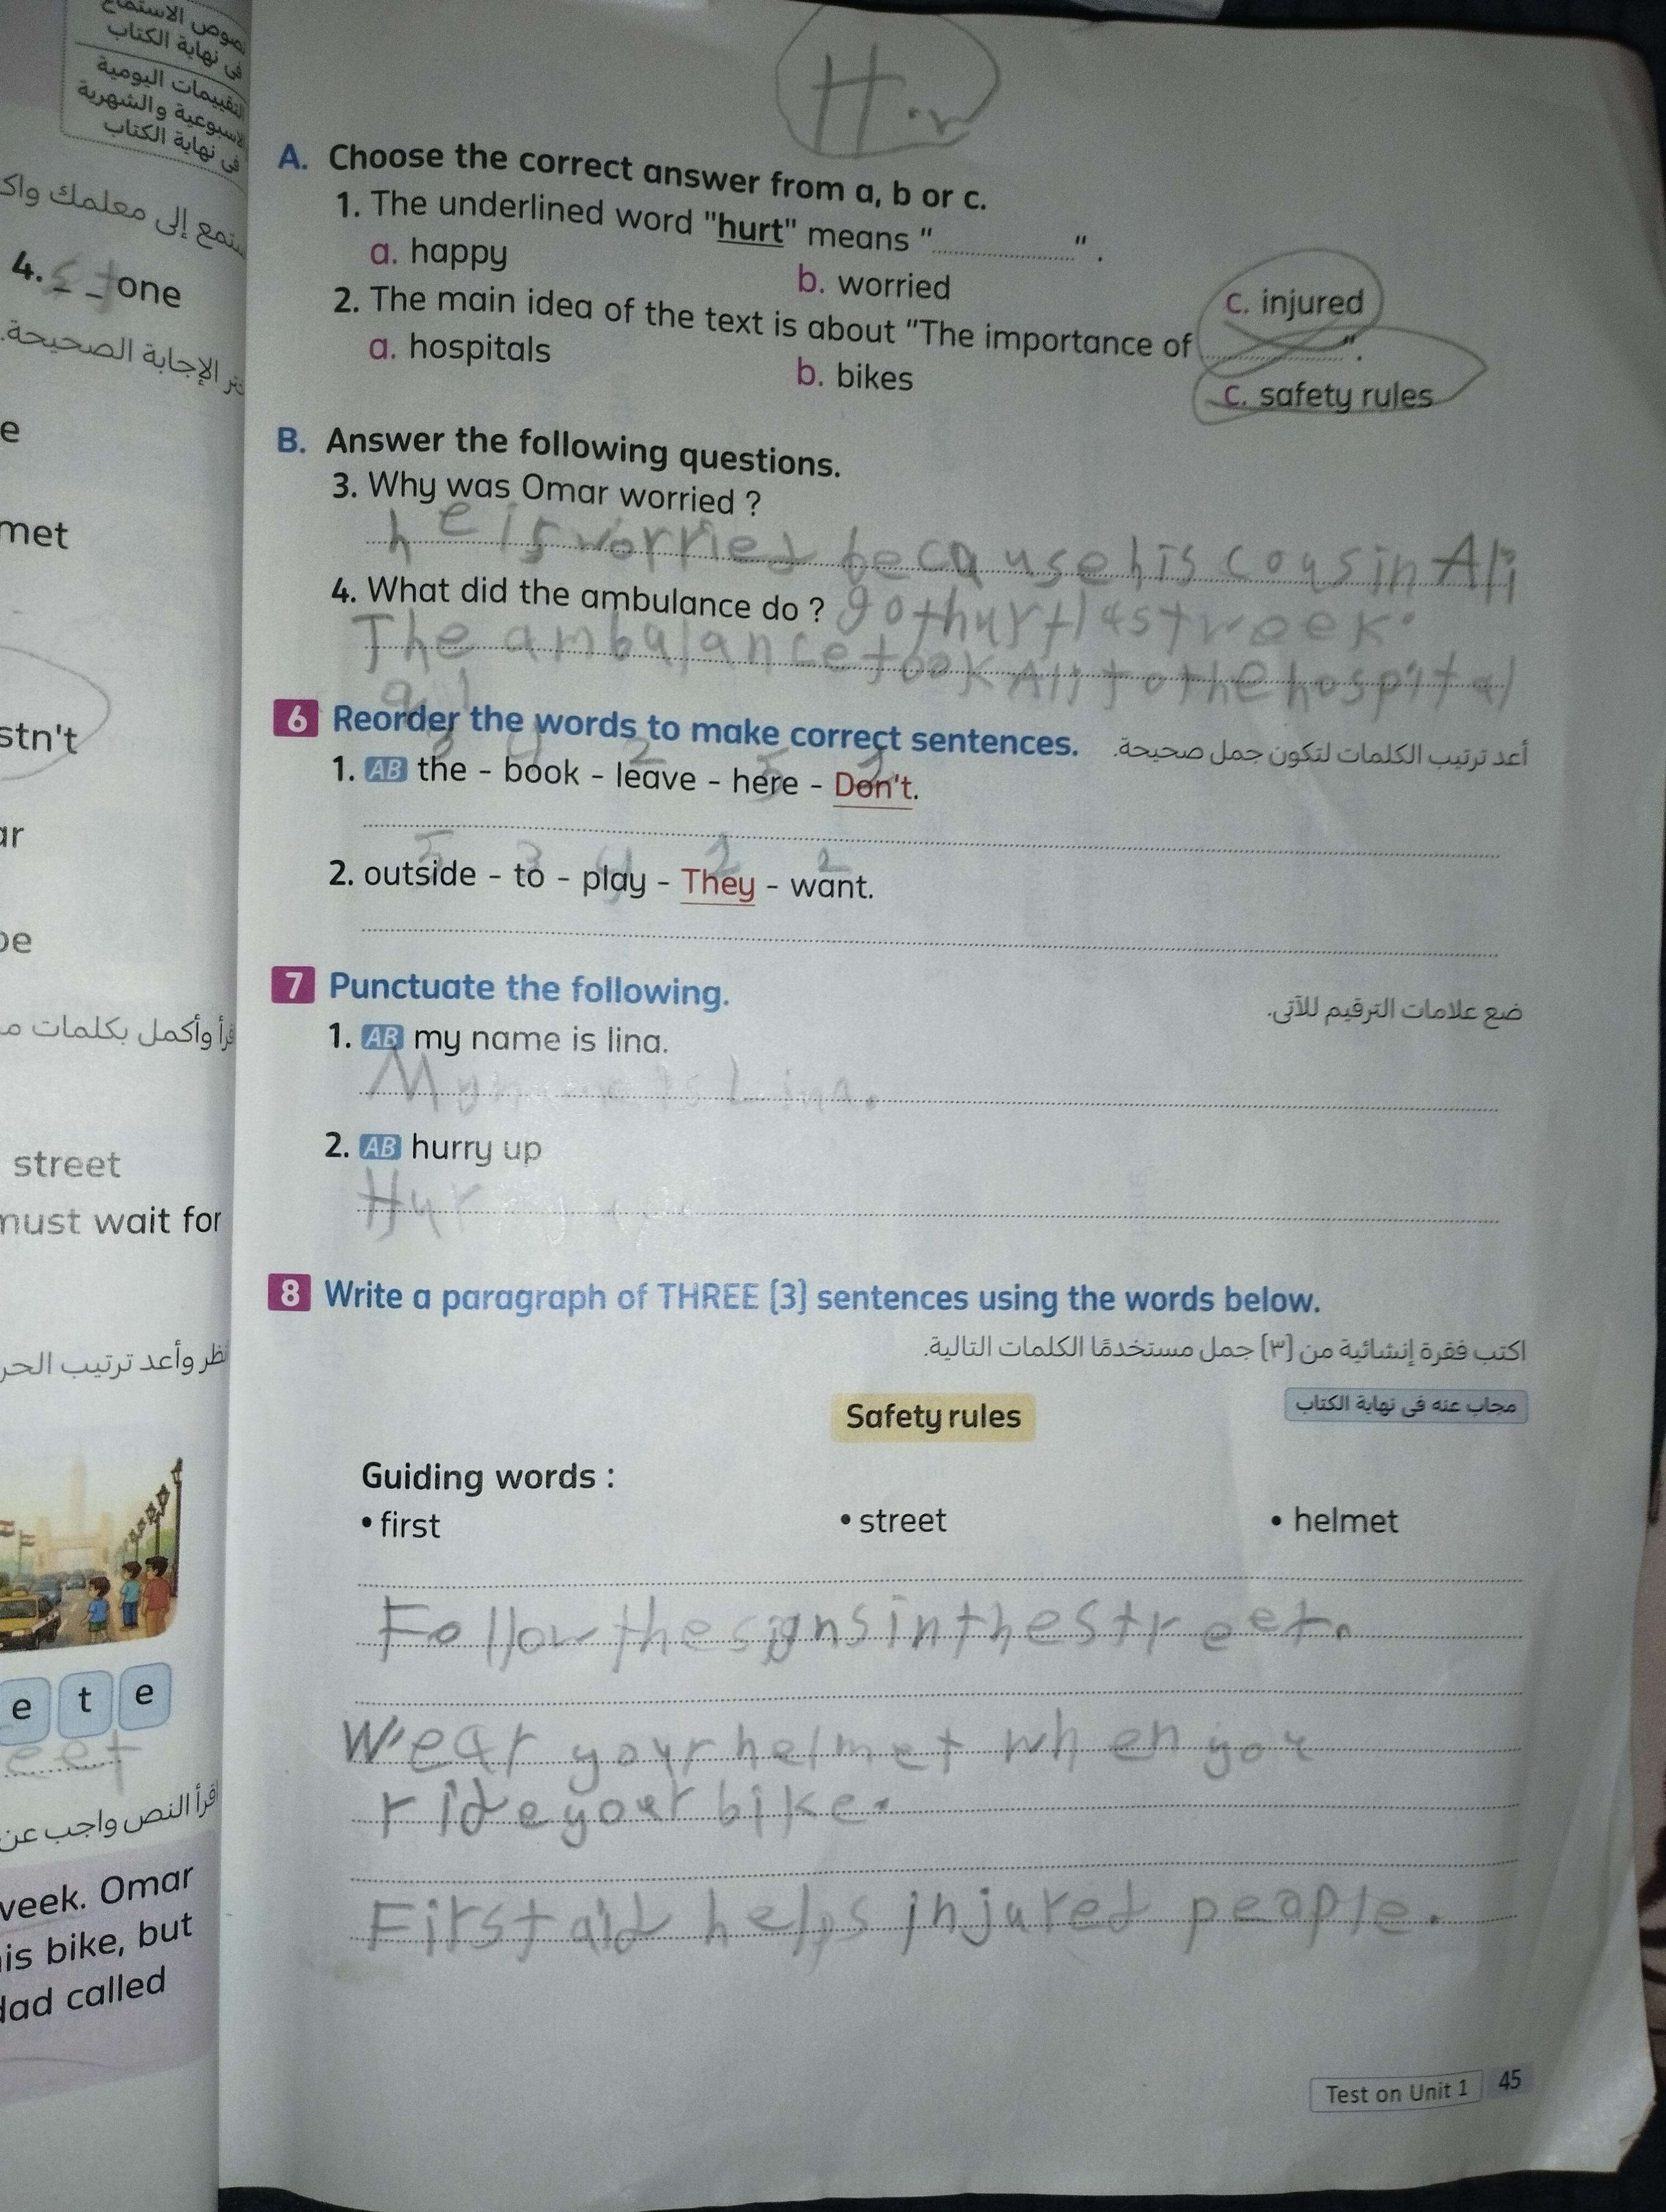 نصوص الاستماع
فى نهاية الكتاب
التقييمات اليومية
الأسبوعية والشهرية
فى نهاية الكتاب
H.w
A. Choose the correct answer from a, b or c.
1. The underlined word "hurt" means "..............".
a. happy b. worried c. injured
2. The main idea of the text is about "The importance of ..............".
a. hospitals b. bikes c. safety rules
B. Answer the following questions.
3. Why was Omar worried ?
he is worried because his cousin Ali
got hurt last week.
4. What did the ambulance do ?
The ambalance took Ali to the hospital
6 Reorder the words to make correct sentences. أعد ترتيب الكلمات لتكون جمل صحيحة.
3 4 2 5 1
1. AB the - book - leave - here - Don't.
5 3 4 1 2
2. outside - to - play - They - want.
7 Punctuate the following. ضع علامات الترقيم للآتى.
1. AB my name is lina.
My name is Lina.
2. AB hurry up
Hur
8 Write a paragraph of THREE (3) sentences using the words below.
اكتب فقرة إنشائية من (٣) جمل مستخدمًا الكلمات التالية.
Safety rules مجاب عنه فى نهاية الكتاب
Guiding words :
• first • street • helmet
Follow the signs in the street.
Wear your helmet when you
ride your bike.
First aid helps injured people.
Test on Unit 1 45
إلى معلمك
4. s tone
الإجابة الصحيحة.
e
met
stn't
ar
be
وأكمل بكلمات
street
must wait for
وأعد ترتيب
e t e
eet
اقرأ النص واجب عن
week. Omar
his bike, but
dad called